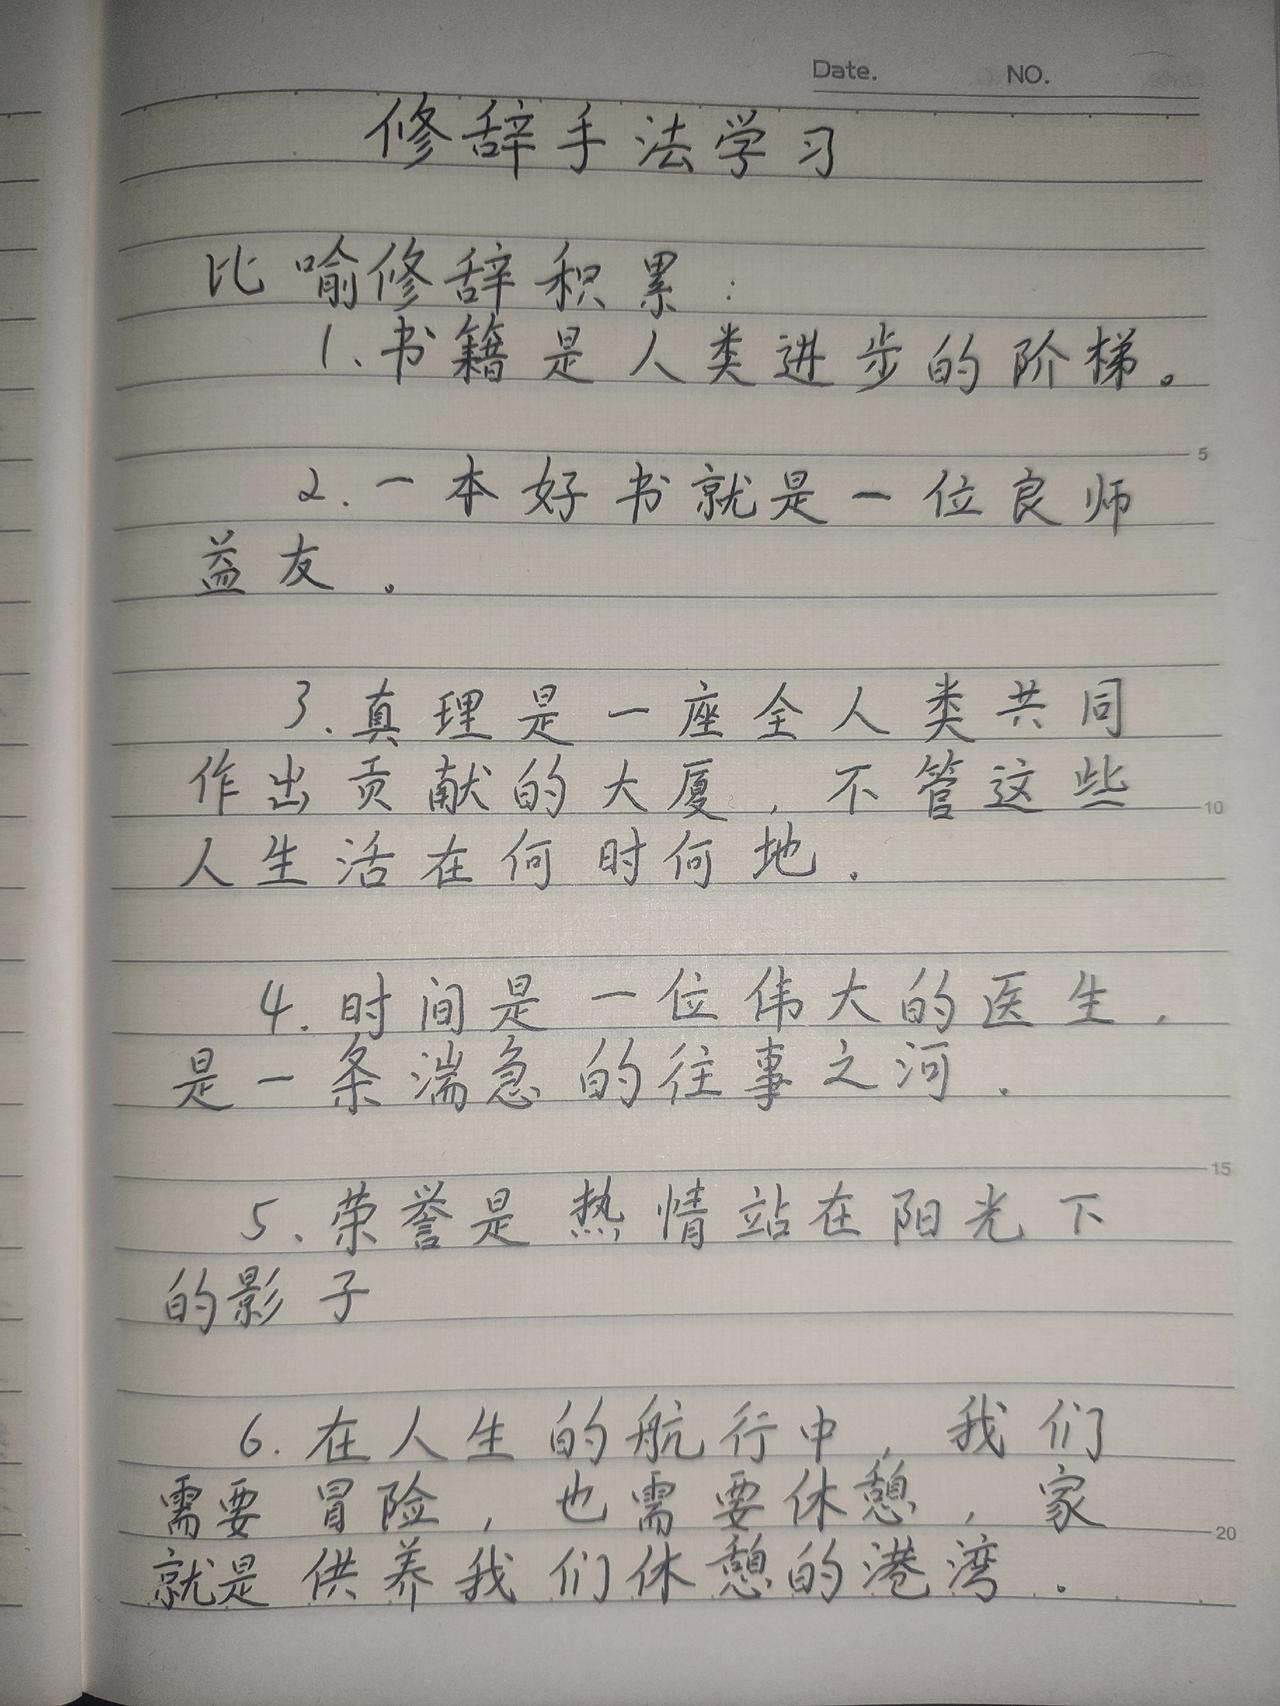 Date. NO.
修辞手法学习
比喻修辞积累:
1.书籍是人类进步的阶梯。
5
2.一本好书就是一位良师
益友。
3.真理是一座全人类共同
作出贡献的大厦,不管这些
10
人生活在何时何地.
4.时间是一位伟大的医生,
是一条湍急的往事之河.
15
5.荣誉是热情站在阳光下
的影子
6.在人生的航行中,我们
需要冒险,也需要休憩,家
20
就是供养我们休憩的港湾.